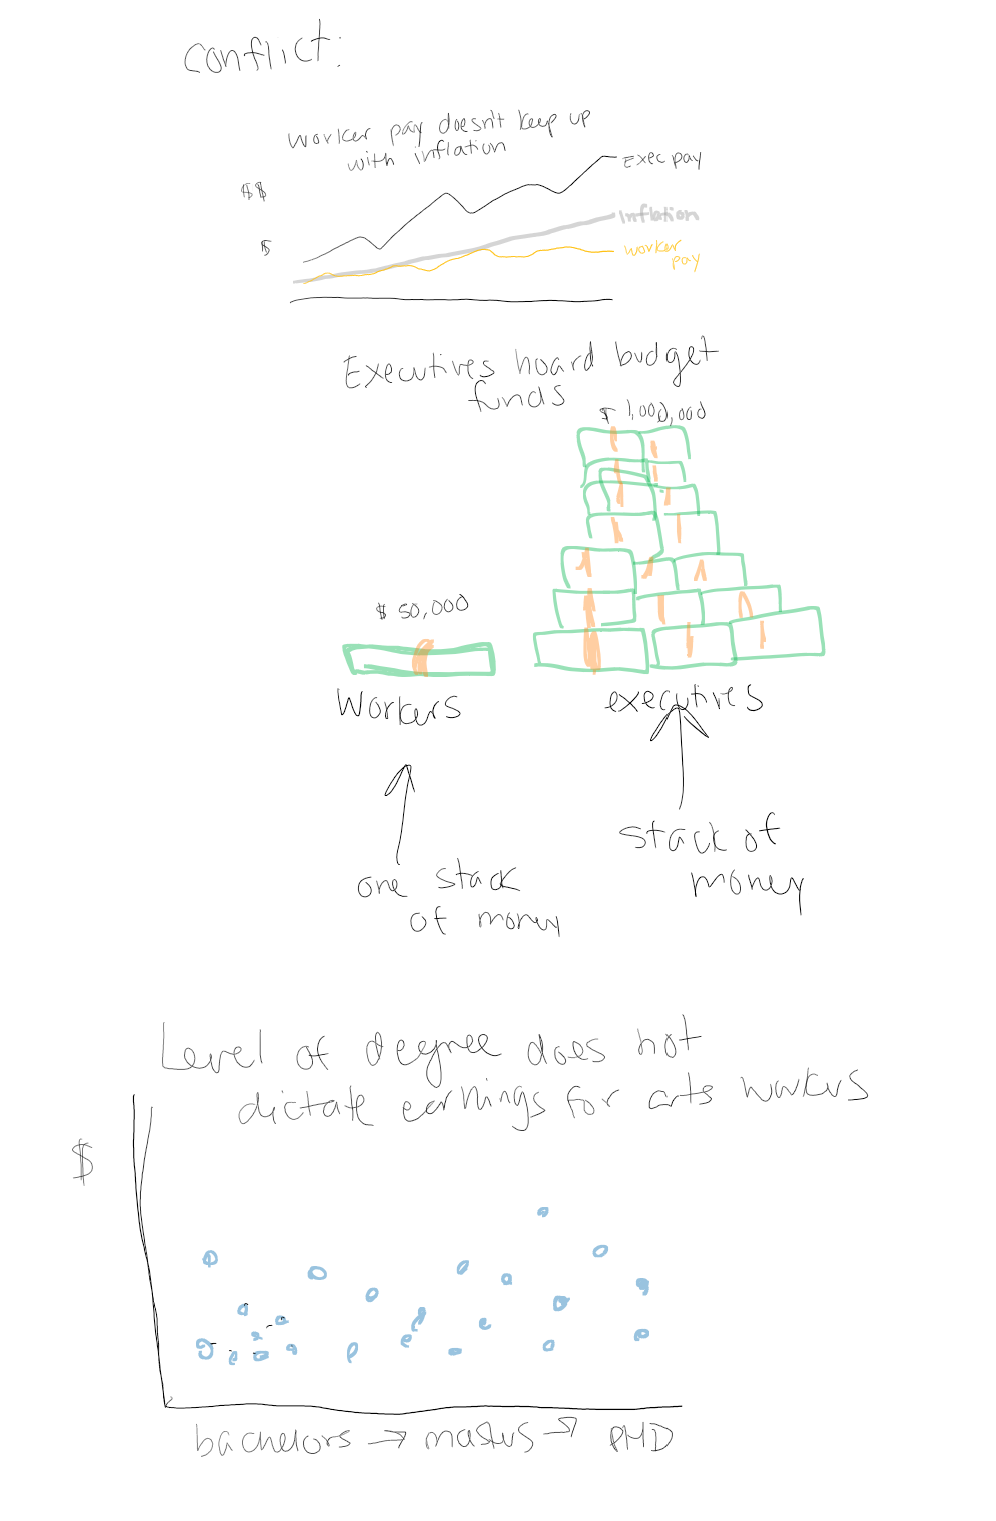 Conflict:
Worker pay doesn't keep up
with inflation
$$
Exec pay
Inflation
$
worker
pay
Executives hoard budget
funds
$ 1,000,000
$ 50,000
Workers
executives
stack of
money
one stack
of money
Level of degree does not
dictate earnings for arts workers
$
bachelors → masters → PHD